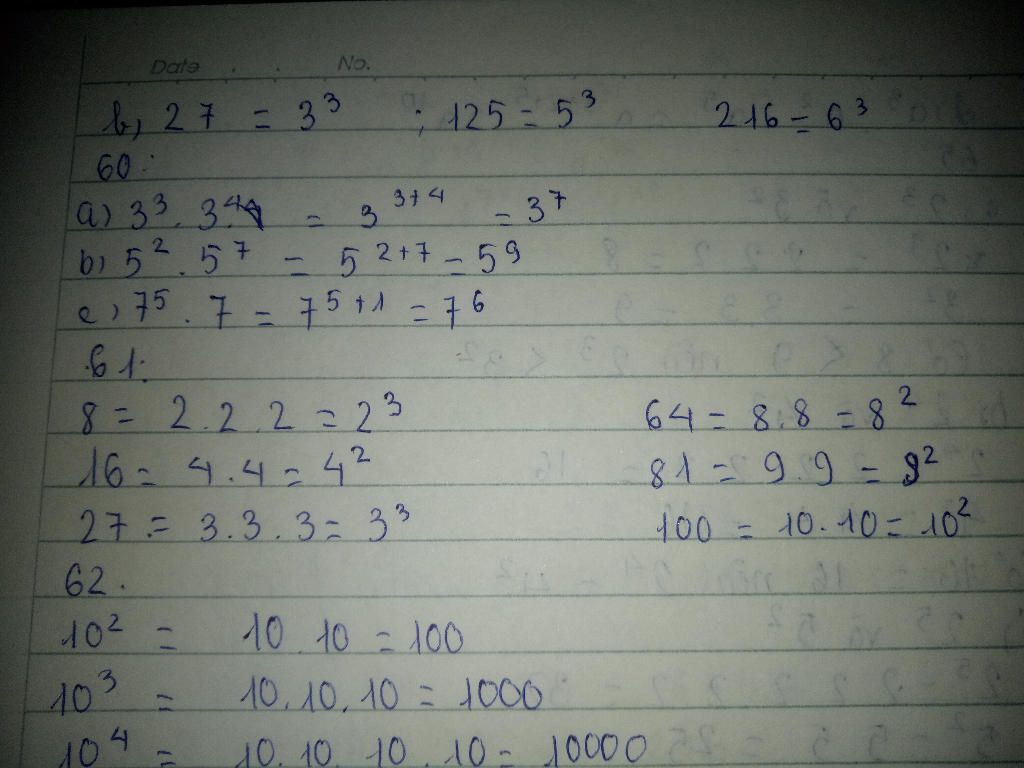 Date . . No.
b) 27 = 3³ ; 125 = 5³ 216 = 6³
60:
a) 3³ . 3⁴ = 3³⁺⁴ = 3⁷
b) 5² . 5⁷ = 5²⁺⁷ = 5⁹
c) 7⁵ . 7 = 7⁵⁺¹ = 7⁶
61:
8 = 2.2.2 = 2³ 64 = 8.8 = 8²
16 = 4.4 = 4² 81 = 9.9 = 9²
27 = 3.3.3 = 3³ 100 = 10.10 = 10²
62.
10² = 10.10 = 100
10³ = 10.10.10 = 1000
10⁴ = 10.10.10.10 = 10000